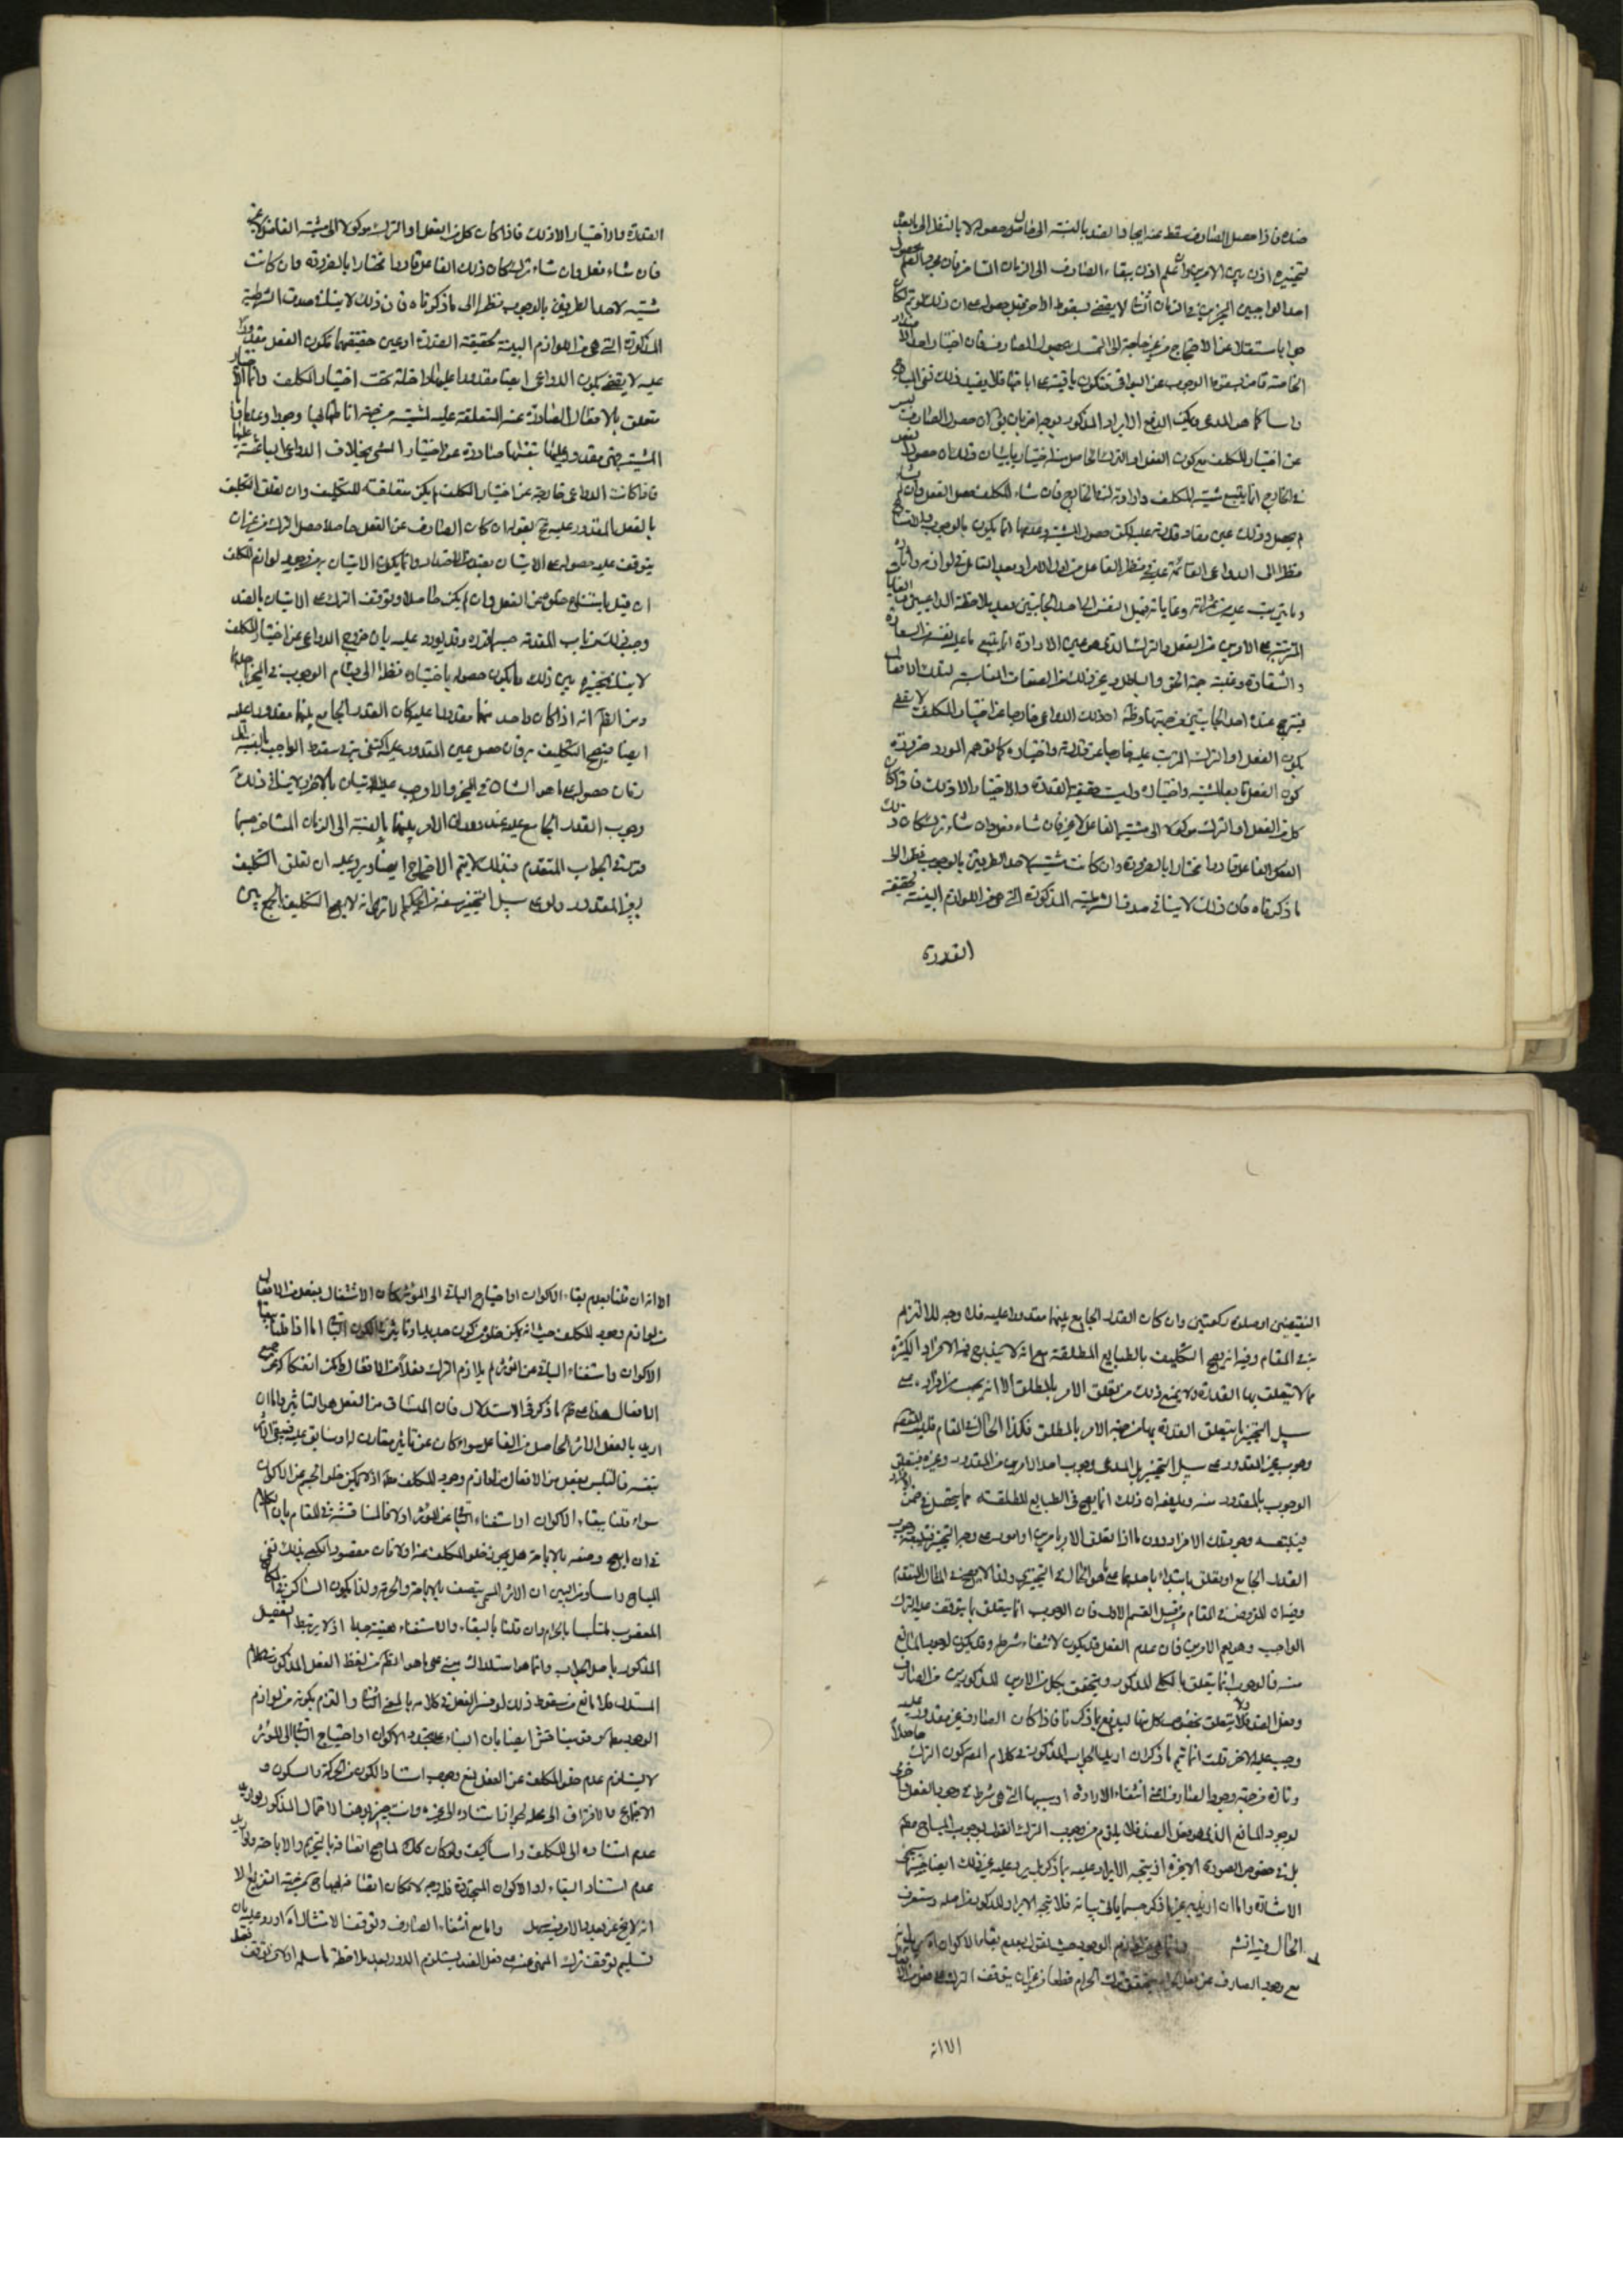 ضده فاذا حصل الصارف سقط عنه ايجاد الضد بالنسبة الى
تخييره اذن بين الامرين ولو علم اذن ببقاء الصارف الى الزمان المتاخر فان
احد الواجبين المخيرين في الزمان الثاني لا يقضي بسقوط الاخر قبل حصوله على ان ذلك لو تم لكان
جوابا مستقلا عن الاحتجاج من غير حاجة الى التمسك بحصول الصارف فان اختيار احد
الخاصة قاض بسقوط الوجوب عن البواقي فتكون باقية على اباحتها فلا يفيد ذلك نفي المباح
راسا كما هو المدعى ويمكن الدفع الايراد المذكور بوجه اخر بان يق ان حصول الصارف ليس
عن اختيار المكلف مع كون الفعل او الترك الحاصل منه اختياريا بيان ذلك ان حصول الفعل
في الخارج انما يتبع مشية المكلف وارادته له في الخارج فان شاء المكلف حصل الفعل وان لم يشاء
لم يحصل وذلك عين مفاد قدرته عليه لكن حصول المشية وعدمها انما يكون بالوجوب والامتناع
نظرا الى الدواعي القائمة عليه في نظر الفاعل من اول الامر او بعد التامل في لوازمه واثاره
وما يترتب عليه من ثمراته وغاياته فميل النفس الى احد الجانبين بعد ملاحظة الداعيين والغايات
المترتبة على الامرين من الفعل والترك الذي هو عين الارادة انما يتبع ما عليه نفسه من السعادة
والشقاوة وغلبة جهة الحق والباطل وغير ذلك من الصفات المناسبة لتلك الافعال
فيترجح عنده احد الجانبين من جهتها وظ ان ذلك الدواعي خارجا عن اختيار المكلف لا يقضي
بكون الفعل او الترك المترتب عليه خارجا عن قدرته واختياره كما توهم المورد ضرورة
كون الفعل تابعا لمشيته واختياره وليست حقيقة القدرة والاختيار الا ذلك فاذا كان
كل من الفعل او الترك موكولا الى مشية الفاعل لا غير فان شاء فعل وان شاء ترك كان ذلك
الفعل الفاعل قادرا مختارا بالضرورة وان كانت مشيته لاحد الطريقين بالوجوب نظرا الى
ما ذكرناه فان ذلك لا ينافي صدق الشرطية المذكورة التي هي من اللوازم البينة لحقيقة
القدرة
القدرة والاختيار الا ذلك فاذا كان كل من الفعل او الترك موكولا الى مشية الفاعل لا غير
فان شاء فعل وان شاء ترك كان ذلك الفاعل قادرا مختارا بالضرورة وان كانت
مشيته لاحد الطريقين بالوجوب نظرا الى ما ذكرناه فان ذلك لا ينافي صدق الشرطية
المذكورة التي هي من اللوازم البينة لحقيقة القدرة او عين حقيقتها فكون الفعل مقدورا
عليه لا يقضي بكون الدواعي ايضا مقدورا عليها داخلة تحت اختيار المكلف وانما الاختيار
متعلق بالافعال الصادرة عنه المتعلقة عليه لمشيته من جهة اناطتها بها وجودا وعدما
المشية فهي مقدور عليها بنفسها صادرة عن اختيار المشي بخلاف الدواعي الباعثة عليها
فاذا كانت الدواعي خارجة عن اختيار المكلف لم يكن متعلقة للتكليف وان تعلق التكليف
بالفعل المقدور عليه فح نقول ان كان الصارف عن الفعل حاصلا حصل الترك من غير ان
يتوقف عليه حصوله على الاتيان بضد من الاضداد وانما يكون الاتيان به من لوازم وجود المكلف
ان قيل بامتناع خلوه عن الفعل وان لم يكن حاصلا وتوقف الترك على الاتيان بالضد
وجب ذلك من باب المقدمة حسبما قرره وقد يورد عليه بان خروج الدواعي عن اختيار المكلف
لا ينافي تخييره بين ذلك وما يكون حصوله باختياره نظرا الى قيام الوجوب في المخير باحدها
ومن الظ انه اذا كان واحد منهما مقدورا عليه كان القدر الجامع بينهما مقدورا عليه
ايضا فيصح التكليف به فان حصل عين المقدور عليه اكتفى به في سقوط الواجب
زمان حصوله على احد الشان في المخير والا وجب عليه الاتيان بالاخر ولا ينافي ذلك
وجوب القدر الجامع عليه عند دوران الامر بينهما بالنسبة الى الزمان المتاخر حسبما
قررته في الجواب المتقدم فبذلك لا يتم الاحتجاج ايضا ويرد عليه ان تعلق التكليف
بغير المقدور ولو على سبيل التخيير سفه من الحكيم الا ترى انه لا يصح التكليف بالجمع بين
النقيضين او صلوة ركعتين وان كان القدر الجامع بينهما مقدورا عليه فلا وجه للالتزام
به في المقام وفيه انه يصح التكليف بالطبايع المطلقة مع انه لا يندرج فيه الافراد الكثيرة
مما لا يتعلق بها القدرة ولا يمنع ذلك من تعلق الامر بالمطلق الا انه يجب من افراده على
سبيل التخيير ما يتعلق القدرة بها من جهة الامر بالمطلق فكذا الحال في المقام فليس القصد
وجوب غير المقدور على سبيل التخيير بل المدعى وجوب احد الامرين من المقدور وغيره فيتعلق
الوجوب بالمقدور منه ويدفعه ان ذلك انما يصح في الطبايع المطلقة مما يتحصل في ضمن الافراد
فيتبعه وجوب تلك الافراد دون ما اذا تعلق الامر بامرين او امور على وجه التخيير
القدر الجامع او تعلق ابتداء باحدهما على ما هو الحال في التخييري ولذا لا يصح في المثال المتقدم
وفيه ان المفروض في المقام من قبيل القسم الاول فان الوجوب انما يتعلق بما يتوقف عليه الترك
الواجب وهو يعم الامرين فان عدم الفعل قد يكون لانتفاء شرطه وقد يكون لوجود المانع
منه فالوجوب انما يتعلق بالكلي المذكور ويتحقق بكل من الامرين المذكورين من الصارف
وفعل الضد ولا يتعلق بخصوص كل منها ليدفع بما ذكرنا فاذا كان الصارف غير مقدور عليه
وجب عليه الاخر قلت انما يتم ما ذكر ان اريد بالجواب المذكور في كلام المعترض كون الترك حاصلا
وتارة من جهة وجود الصارف اعني انتفاء الارادة او سببها التي هي شرط في وجود الفعل واخرى
لوجود المانع الذي هو فعل الضد فلا يلزم من وجوب الترك القول بوجوب المباح مطم
بل في خصوص الصورة الاخيرة اذ يتجه الايراد عليه بما ذكر بل يرد عليه غير ذلك ايضا حسبما يجئ
الاشارة واما ان اريد به غير ما ذكر حسبما ياتي بيانه فلا يتجه الايراد المذكور من اصله وستعرف
الحال فيه انش وانما هي من لوازم الوجود حيث نقول بعدم بقاء الاكوان
مع وجود الصارف عن فعل الحرام يتحقق ترك الحرام قطعا من غير ان يتوقف الترك على فعل من
الا انه
الا انه ان قلنا بعدم بقاء الاكوان او احتياج الباقي الى المؤثر كان الاشتغال بفعل من الافعال
من لوازم وجود المكلف حيث انه لا يمكن خلوه من كون جديد او تاثير في الكون الباقي اما اذا قلنا ببقاء
الاكوان واستغناء الباقي عن المؤثر لم يلازم الترك فعلا من الافعال لامكن انفكاكه عن جميع
الافعال هذا على ظ ما ذكره في الاستدلال فان المنساق من الفعل هو التاثير واما ان
اريد بالفعل الاثر الحاصل من الفاعل سواء كان عن تاثير مقارن له او سابق عليه فيبقى الاثر
بنفسه فالتلبس بفعل من الافعال من لوازم وجود المكلف مط اذ لا يمكن خلو الجسم عن الاكوان
سواء قلنا ببقاء الاكوان او استغناء الباقي عن المؤثر اولا فالمناقشة في المقام بان الكلام
في ان ايصح وصفه بالاباحة هل يجوز خلو المكلف عنه اولا فان مقصود الكعبي بذلك نفي
المباح راسا ومن البين ان الاثر المستمر يتصف بالاباحة والحرمة ولذا يكون الساكن في المكان
المغصوب متلبسا بالحرام وان قلنا بالبقاء والاستغناء هينة جدا اذ لا يرتبط التفصيل
المذكور باصل الجواب وانما هو استدراك مبني على ما هو الظ من لفظ الفعل المذكور في كلام
المستدل فلا مانع من سقوط ذلك لو فسر الفعل في كلامه بالمعنى الثاني والتزم بكونه من لوازم
الوجود مطلقا وقد يناقش ايضا بان البناء على تجدد الاكوان او احتياج الباقي الى المؤثر
لا يستلزم عدم خلو المكلف عن الفعل لمنع وجوب استناد الكون من الحركة والسكون و
الاجتماع والافتراق الى محله لجواز استناده الى غيره وانت خبير بوهن الاحتمال المذكور لو اريد
عدم استناده الى المكلف راسا كيف ولو كان كذلك لما صح اتصافه بالتحريم والاباحة ولو اريد
عدم استناد البقاء او الاكوان المتجددة فلا وجه
انه لا يخ عن بعد والامر فيه سهل واما مع انتفاء الصارف وتوقف الامتثال اه اورد عليه بان
تسليم توقف ترك المنهي عنه على فعل الضد يستلزم الدور بعد ملاحظة ما سلمه اولا من توقف